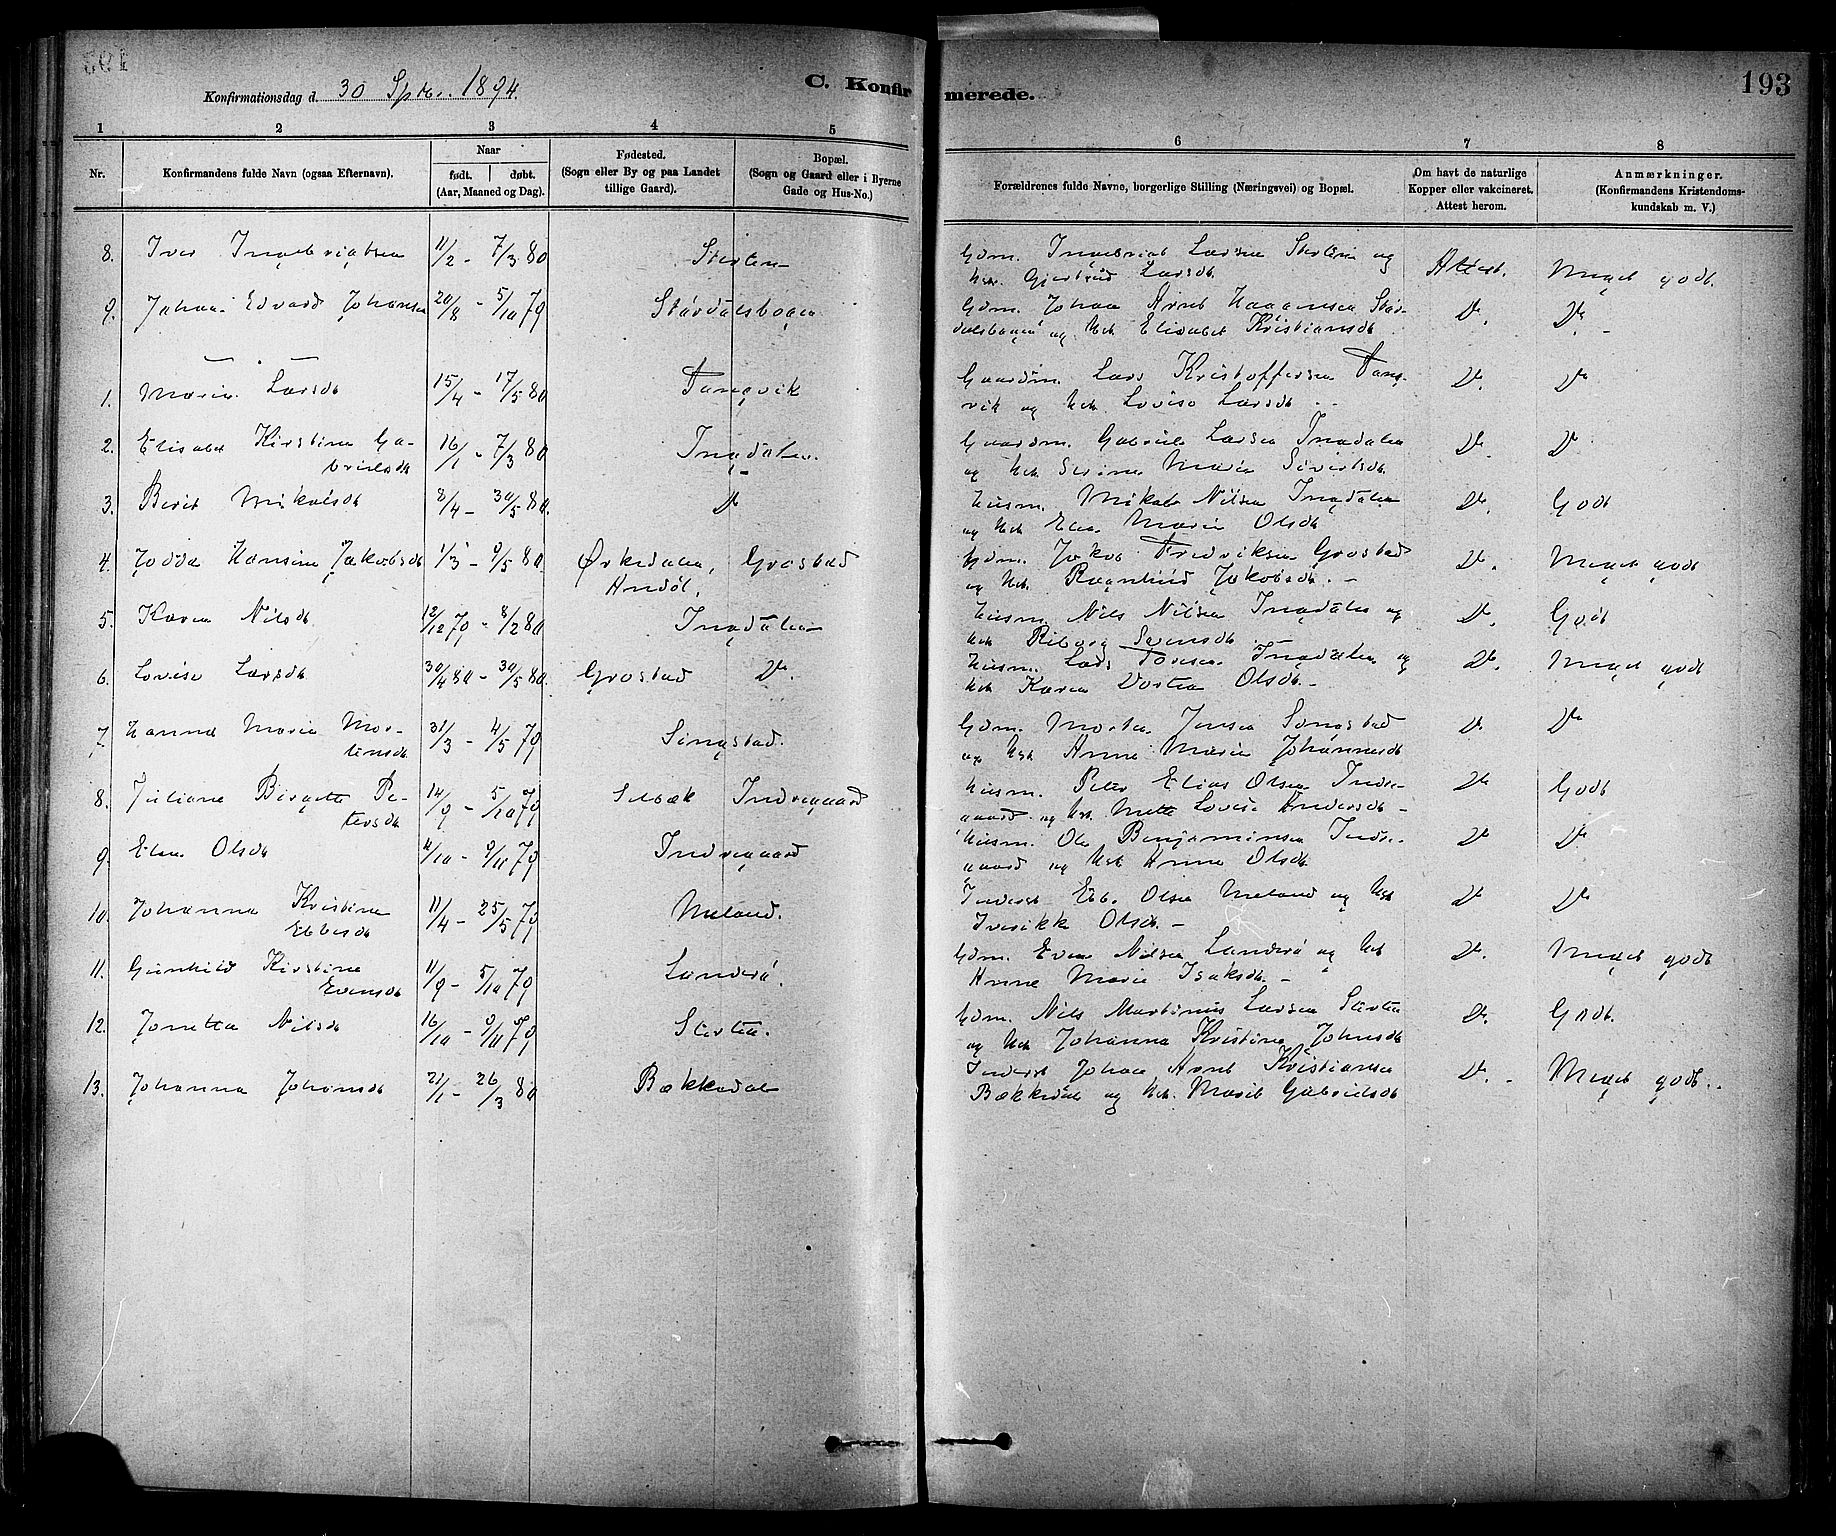 193
Konfirmationsdag d. 30 Sptr. 1894.
C. Konfirmerede.
1 2 3 4 5 6 7 8
Nr.
Konfirmandens fulde Navn (ogsaa Efternavn).
Naar
født. døbt.
(Aar, Maaned og Dag).
Fødested.
(Sogn eller By og paa Landet
tillige Gaard).
Bopæl.
(Sogn og Gaard eller i Byerne
Gade og Hus-No.)
Forældrenes fulde Navne, borgerlige Stilling (Næringsvei) og Bopæl.
Om havt de naturlige
Kopper eller vakcineret.
Attest herom.
Anmærkninger.
(Konfirmandens Kristendoms-
kundskab m. V.)
8. Iver Ingebrigtsen 11/2 - 7/3 80 Stersten Gdm. Ingebrigt Larsen Stersten og
Gjertrud Larsdt. Attest. Meget godt.
9. Johan Edvard Johansen 20/8 - 5/10 79 Stordalsbogen Gdm. Johan Arnt Haagensen Stor-
dalsbogen og Hst. Elisabet Kristiansdt. Do. Do.
1. Marie Larsdt 15/4 - 17/5 80 Tangvik Gaardm. Lars Kristoffersen Tang-
vik og Hst. Lovise Larsdt. Do. Do
2. Elisabet Kirstine Ga-
brielsdt 16/1 - 7/3 80 Ingdalen. Gaardm. Gabriel Larsen Ingdalen
og Hst. Serine Marie Sivertsdt. Do. Do
3. Berit Mikalsdt 8/4 - 30/5 80. Do Husm. Mikal Nilsen Ingdalen
og Hst. Elen Marie Olsdt Do. Godt
4. Jodda Hansine Jakobsdt 1/3 - 9/5 80. Ørkedalen, Grøstad
Gdm. Jakob Fredriksen Grøstad
og Hst. Ragnhild Jakobsdt. Do. Meget godt
5. Karen Nilsdt. 12/12 79 - 8/2 80 Ingdalen Husm. Nils Nilsen Ingdalen og
Hst. Riborg Svensdt. Do. Godt
6. Lovise Larsdt 30/4 80 - 30/5 80. Grøstad Do. Husm. Lars Tøresen Ingdalen og
Hst. Karen Dortea Olsdt. Do. Meget godt
7. Hanna Marie Mor-
tensdt 31/3 - 4/5 79 Singstad. Gdm. Morten Jensen Songstad
og Hst Anne Marie Johannesdt Do. Do
8. Juliane Birgitte Pe-
tersdt 14/9 - 5/10 79, Selbæk Indregaard Husm. Peter Elias Olsen Indre-
gaard og Hst. Mette Lovise Andersdt Do Godt
9. Elen Olsdt 4/10 - 9/11 79, Indregaard Husm. Ole Benjaminsen Indre-
gaard og Hst Anne Olsdt Do Do
10. Johanna Kristine
Ebbesdt 11/4 - 25/5 79, Meland. Inderst Ebb. Olsen Meland og Hst
Iverikke Olsdt. Do Do
11. Gunhild Kirstine
Evensdt 11/9 - 5/10 79 Landrø. Gdm. Even Nilsen Landrø og Hst
Anne Marie Isaksdt. Do. Meget godt
12. Jonetta Nilsdt 16/10 - 9/11 79, Stersten. Gdm. Nils Martinus Larsen Stersten
og Hst Johanna Kristine Johnsdt Do. Godt.
13. Johanna Johansdt 21/1 - 26/3 80 Bækkedal Inderst Johan Arnt Kristiansen
Bækkedal og Hst. Marit Gabrielsdt Do. Meget godt.